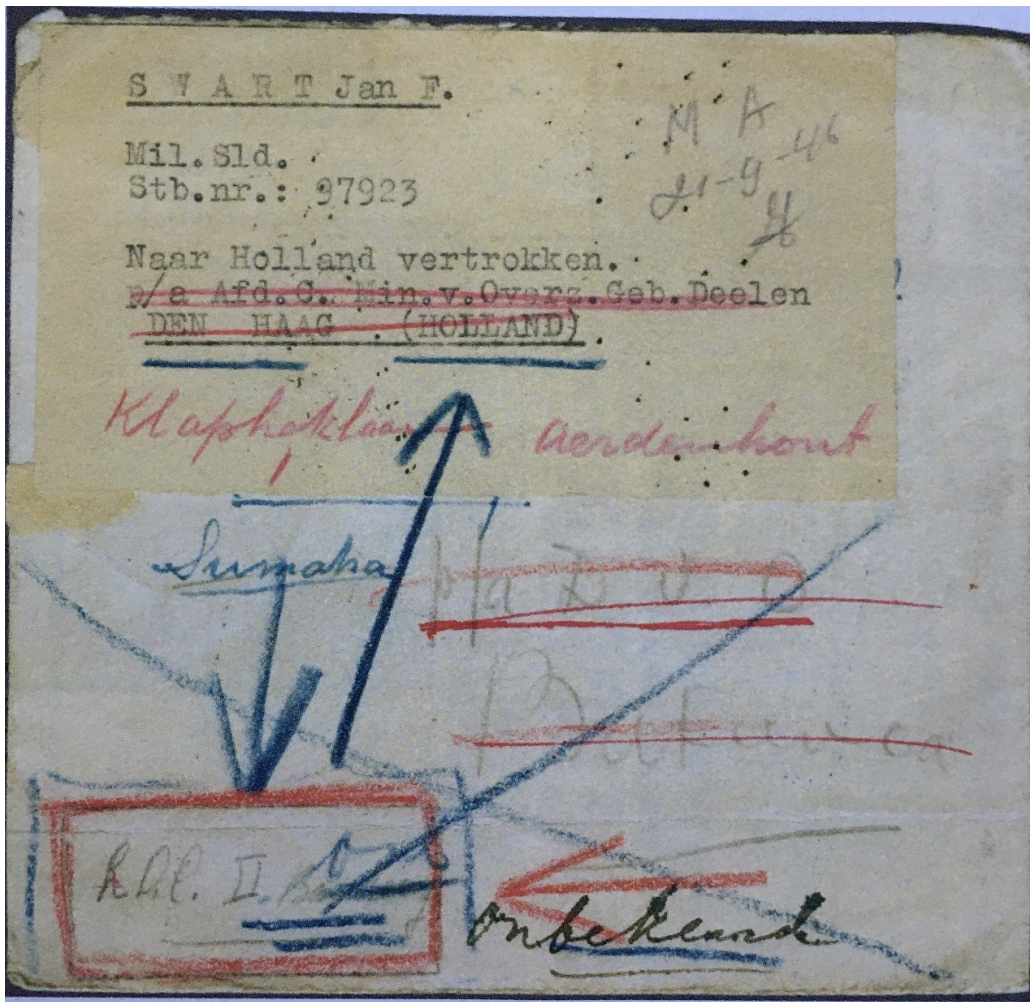 S W A R T Jan F.
M A
21-9-46
Mil.Sld.
Stb.nr.: 97923
Naar Holland vertrokken.
p/a Afd.C. Min.v.Overz.Geb.Deelen
DEN HAAG (HOLLAND)
Aerdenhout
Sumatra
p/a D V O
Batavia
II
Onbekend